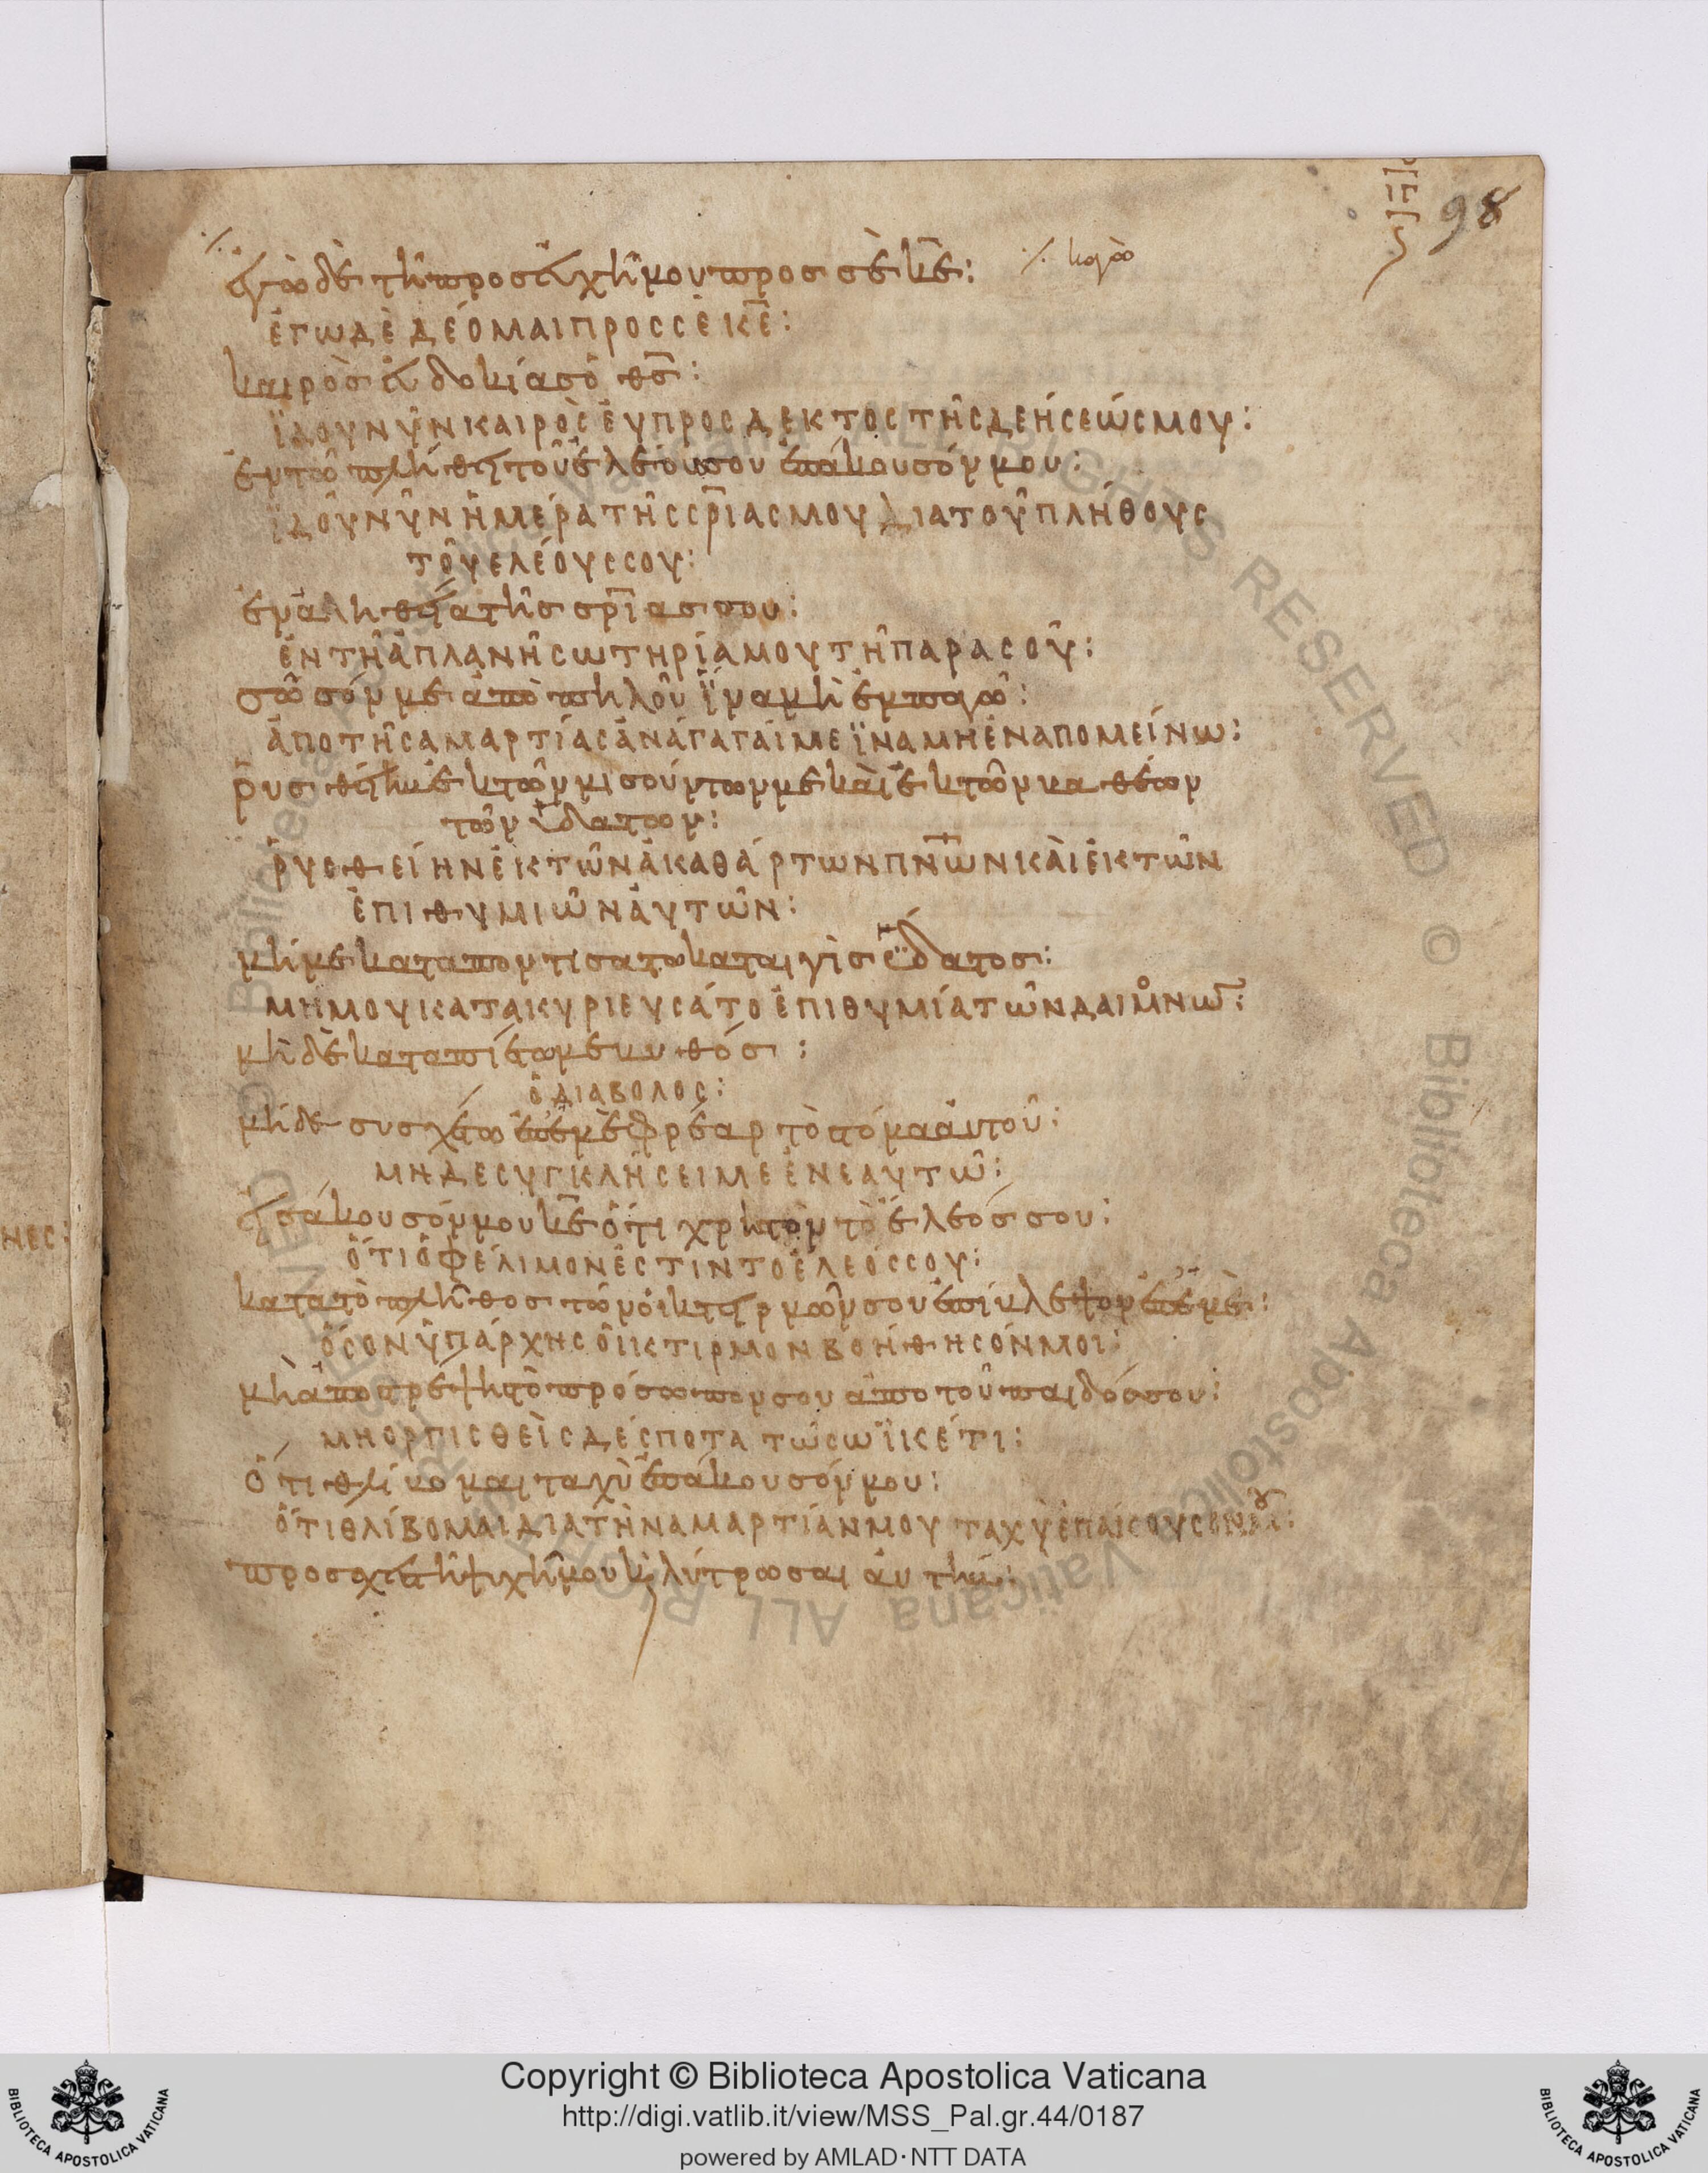 98
ἐγὼ δὲ τῆ προσευχῆ μου προσ σὲ κ̅ε̅:
ἐγωδὲ δέομαι προς σὲ κ̅ε̅:
καιρὸσ εὐδοκίασ ὁ θ̅σ̅:
ϊδου νῦν καιρὸς εὐπροςδεκτος τῆς δεήσεώς μου:
ἐν τῶ πλήθει τοῦ ἐλέουσ σου ἐπάκουσόν μου:
ϊδοῦ νῦν ἡμέρα τῆς ςρ̅ιας μου δια τοῦ πλήθους
τοῦ ελέους σου:
ἐν ἀληθεία τῆσ σρ̅ιασ σου:
ἐν τῆ ἀπλανῆ σωτηρία μου τῆ παρα σοῦ:
σῶσόν με ἀπὸ πηλοῦ ἵνα μὴ ἐμπαγῶ:
ἀπο τῆς αμαρτίας ἀνάγαγαί με ϊνα μη ἐναπομείνω:
ῥυσθείην ἐκ τῶν μισούντων με καὶ ἐκ τῶν βαθέων
τῶν ὑδατων:
ῥυσθείην ἐκ τῶν ἀκαθάρτων πν̅ων καὶ ἐκ τῶν
ἐπιθυμιῶν ἀυτῶν:
μή με καταποντισατω καταιγὶσ ὕδατοσ:
μη μου κατακυριευσάτο ἐπιθυμία τῶν δαιμόνω:
μὴ δὲ καταπιέτω με βυθόσ:
ὁ διαβολος:
μήδε συσχέτω ἐπ' ἐμὲ φρέαρ τὸ στόμα ἀυτοῦ:
μηδε συγκλῆσει με ἐν εαυτῶ:
εἰσάκουσόν μου κ̅ε̅ ὅτι χρηστὸν τὸ ἔλεόσ σου:
ὅτι ὀφέλιμον ἐςτιν το ἐλεός σου:
κατα τὸ πλῆθοσ τῶν οἰκτιρμῶν σου ἐπίβλεψον ἐπ' ἐμὲ:
ὅσον ὑπάρχης ὀικτιρμον βοήθησόν μοι:
μὴ ἀποστρέψησ τὸ πρόσωπον σου ἀπο τοῦ παιδόσ σου:
μη οργισθεὶς δέςποτα τῶ σω ϊκέτι:
ὅτι θλίβομαι ταχὺ ἐπάκουσόν μου:
ὅτι θλίβομαι δια τὴν αμαρτίαν μου ταχὺ ἐπάκουσον μου:
προσχεσ τῆ ψυχῆ μου κ λύτρωσαι ἀυτήν:
Copyright © Biblioteca Apostolica Vaticana
http://digi.vatlib.it/view/MSS_Pal.gr.44/0187
powered by AMLAD·NTT DATA
BIBLIOTECA APOSTOLICA VATICANA
BIBLIOTECA APOSTOLICA VATICANA